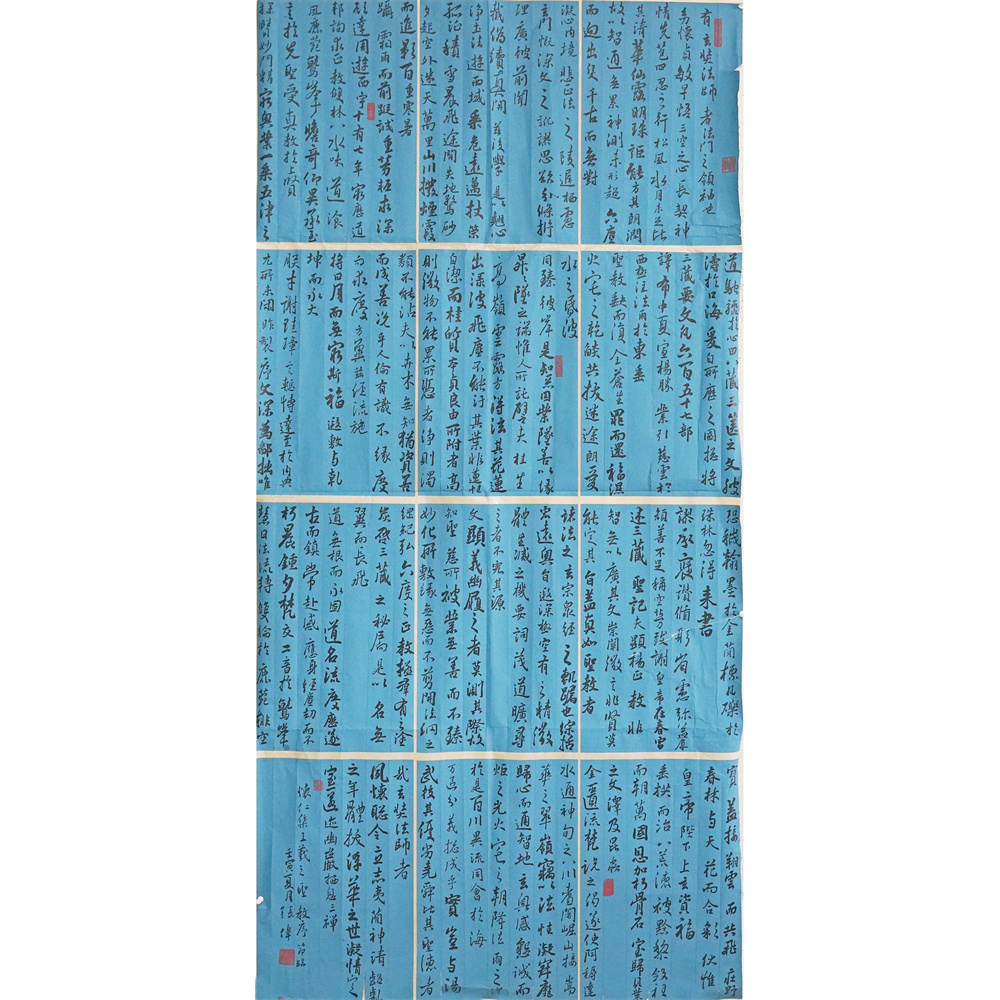 有玄奘法師者法門之領袖也
幼懷貞敏早悟三空之心長契神
情先苞四忍之行松風水月未足比
其清華仙露明珠詎能方其朗潤
故以智通無累神測未形超六塵
而迥出隻千古而無對
凝心內境悲正法之陵遲栖慮
玄門慨深文之訛謬思欲分條析
理廣彼前聞
截偽續真開茲後學是以翹心
淨土法遊西域乘危遠邁杖策
孤征積雪晨飛途閒失地驚砂
夕起空外迷天萬里山川撥煙霞
而進影百重寒暑
躡霜雨而前蹤誠重勞輕求深
願達周遊西宇十有七年窮歷道
邦詢求正教雙林八水味道飡
風鹿菀鷲峯瞻奇仰異承至
言於先聖受真教於上賢
探賾妙門精窮奧業一乘五律之
道馳驟於心田八藏三篋之文波
濤於口海爰自所歷之國總將
三藏要文凡六百五十七部
譯布中夏宣揚勝業引慈雲於
西極注法雨於東垂
聖教缺而復全蒼生罪而還福濕
火宅之乾燄共拔迷途朗愛
水之昏波
同臻彼岸是知惡因業墜善以緣
昇之墜之端惟人所託譬夫桂生
高嶺雲露方得泫其花蓮
出淥波飛塵不能汙其葉非蓮性
自潔而桂質本貞良由所附者高
則微物不能累所憑者淨則濁
類不能沾夫以卉木無知猶資善
而成善況乎人倫有識不緣慶
而求慶方冀茲經流施
將日月而無窮斯福遐敷與乾
坤而永大
朕才謝珪璋言慙博達至於內典
尤所未閑昨製序文深為鄙拙唯
恐穢翰墨於金簡標瓦礫於
珠林忽得來書
謬承褒讚循躬省慮彌益厚
顏善不足稱空勞致謝皇帝在春宮
述三藏聖記夫顯揚正教非
智無以廣其文崇闡微言非賢莫
能定其旨蓋真如聖教者
諸法之玄宗眾經之軌躅也綜括
宏遠奧旨遐深極空有之精微
體生滅之機要詞茂道曠尋
之者不究其源
文顯義幽履之者莫測其際故
知聖慈所被業無善而不臻
妙化所敷緣無惡而不剪開法網之
綱紀弘六度之正教拯群有之塗
炭啟三藏之秘扃是以名無
翼而長飛
道無根而永固道名流慶歷遂
古而鎮常赴感應身經塵劫而不
朽晨鐘夕梵交二音於鷲峯
慧日法流轉雙輪於鹿菀排空
寶蓋接翔雲而共飛莊野
春林與天花而合彩伏惟
皇帝陛下上玄資福
垂拱而治八荒德被黔黎斂衽
而朝萬國恩加朽骨石室歸貝葉
之文澤及昆蟲
金匱流梵說之偈遂使阿耨達
水通神甸之八川耆闍崛山接嵩
華之翠嶺竊以法性凝寂靡
歸心而通智地玄奧感懇誠而
炬之光火宅之朝降法雨之
於是百川異流同會於海
萬區分義總成乎實豈與湯
武校其優劣堯舜比其聖德者
哉玄奘法師者
夙懷聰令立志夷簡神清齠齔
之年體拔浮華之世凝情定
室匿迹幽巖栖息三禪
懷仁集王羲之聖教序節臨
壬寅夏月張偉